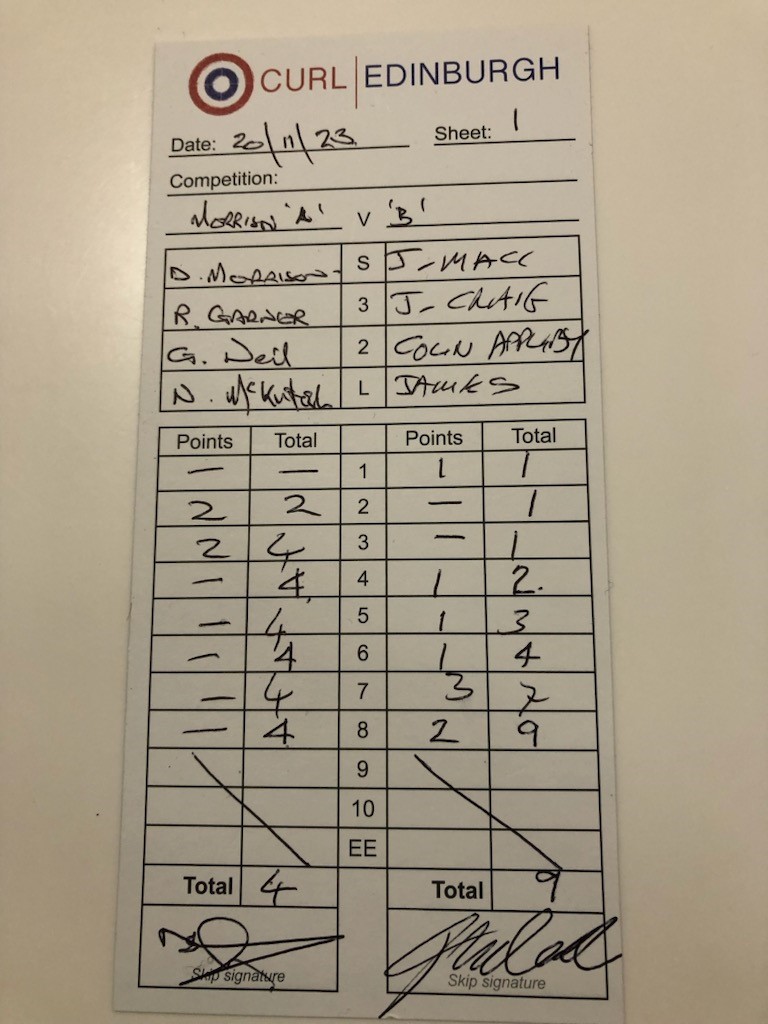 CURL EDINBURGH
Date: 20/11/23 Sheet: 1
Competition:
MORRISON 'A' V 'B'
D. MORRISON S J-MACC
R. GARNER 3 J-CRAIG
G. Neil 2 COLIN APPLEBY
N. L JAMES
Points Total Points Total
— — 1 1 1
2 2 2 — 1
2 4 3 — 1
— 4 4 1 2.
— 4 5 1 3
— 4 6 1 4
— 4 7 3 7
— 4 8 2 9
9
10
EE
Total 4 Total 9
Skip signature Skip signature